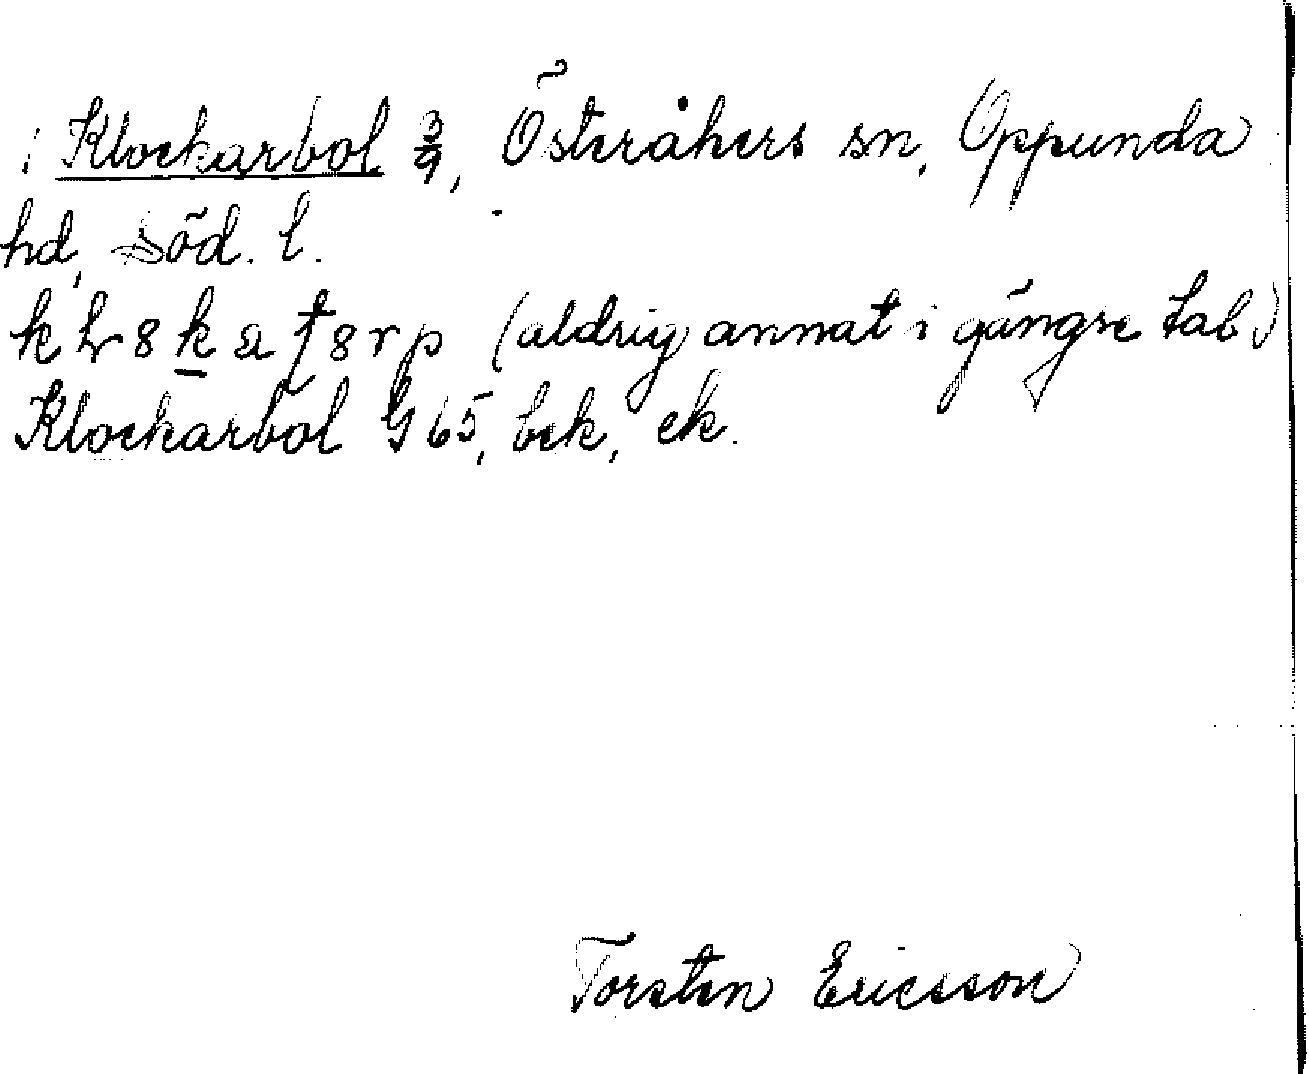 : Klockarbol 3/9, Österåkers sn, Oppunda
hd, Söd. l.
(aldrig annat i gängse tal)
Klockarbol G 65, bek, ek.
Torsten Ericsson